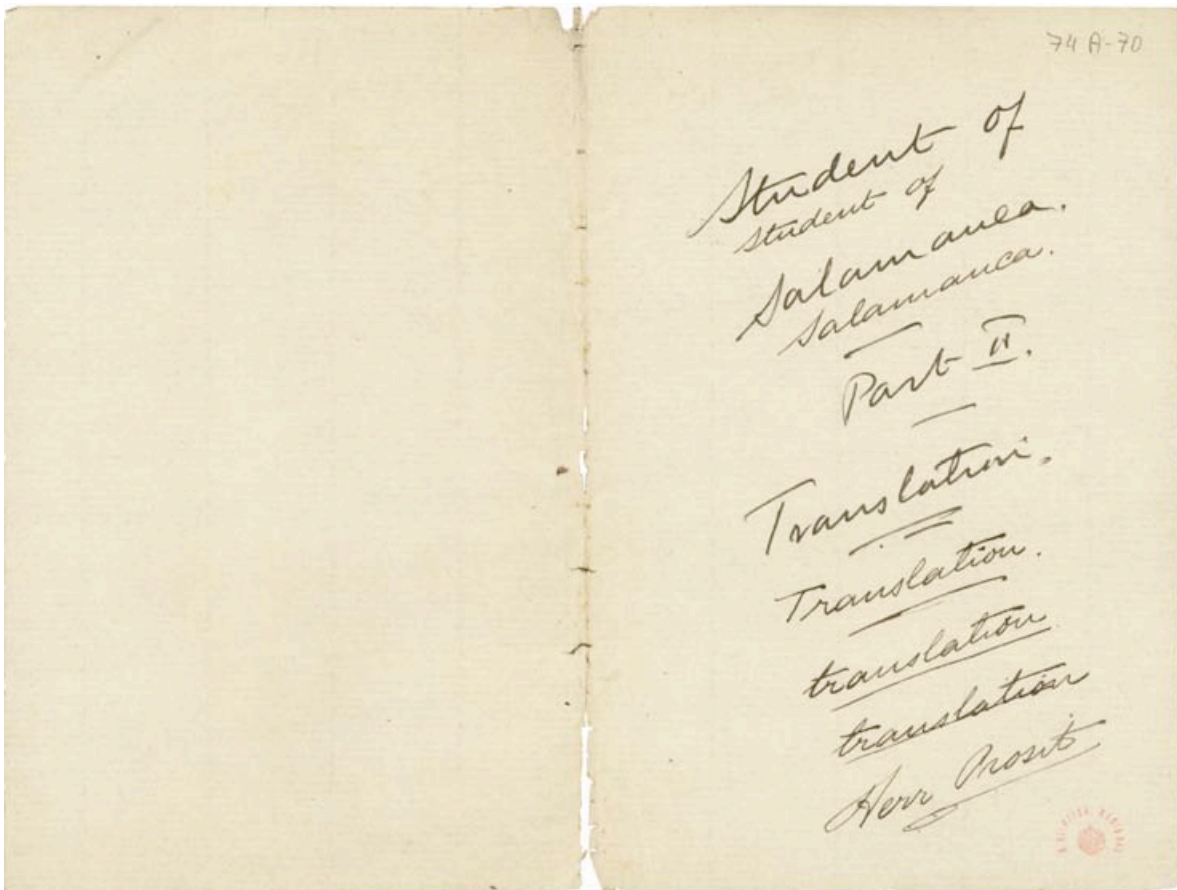 74 A-70
Student of
student of
Salamanca.
Salamanca.
Part II.
Translation.
Translation.
translation
translation
Herr Prosit